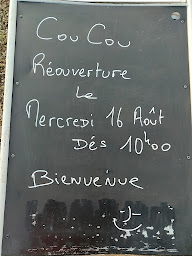 Coucou
Réouverture
Le
Mercredi 16 Août
Dés 10h00
Bienvenue